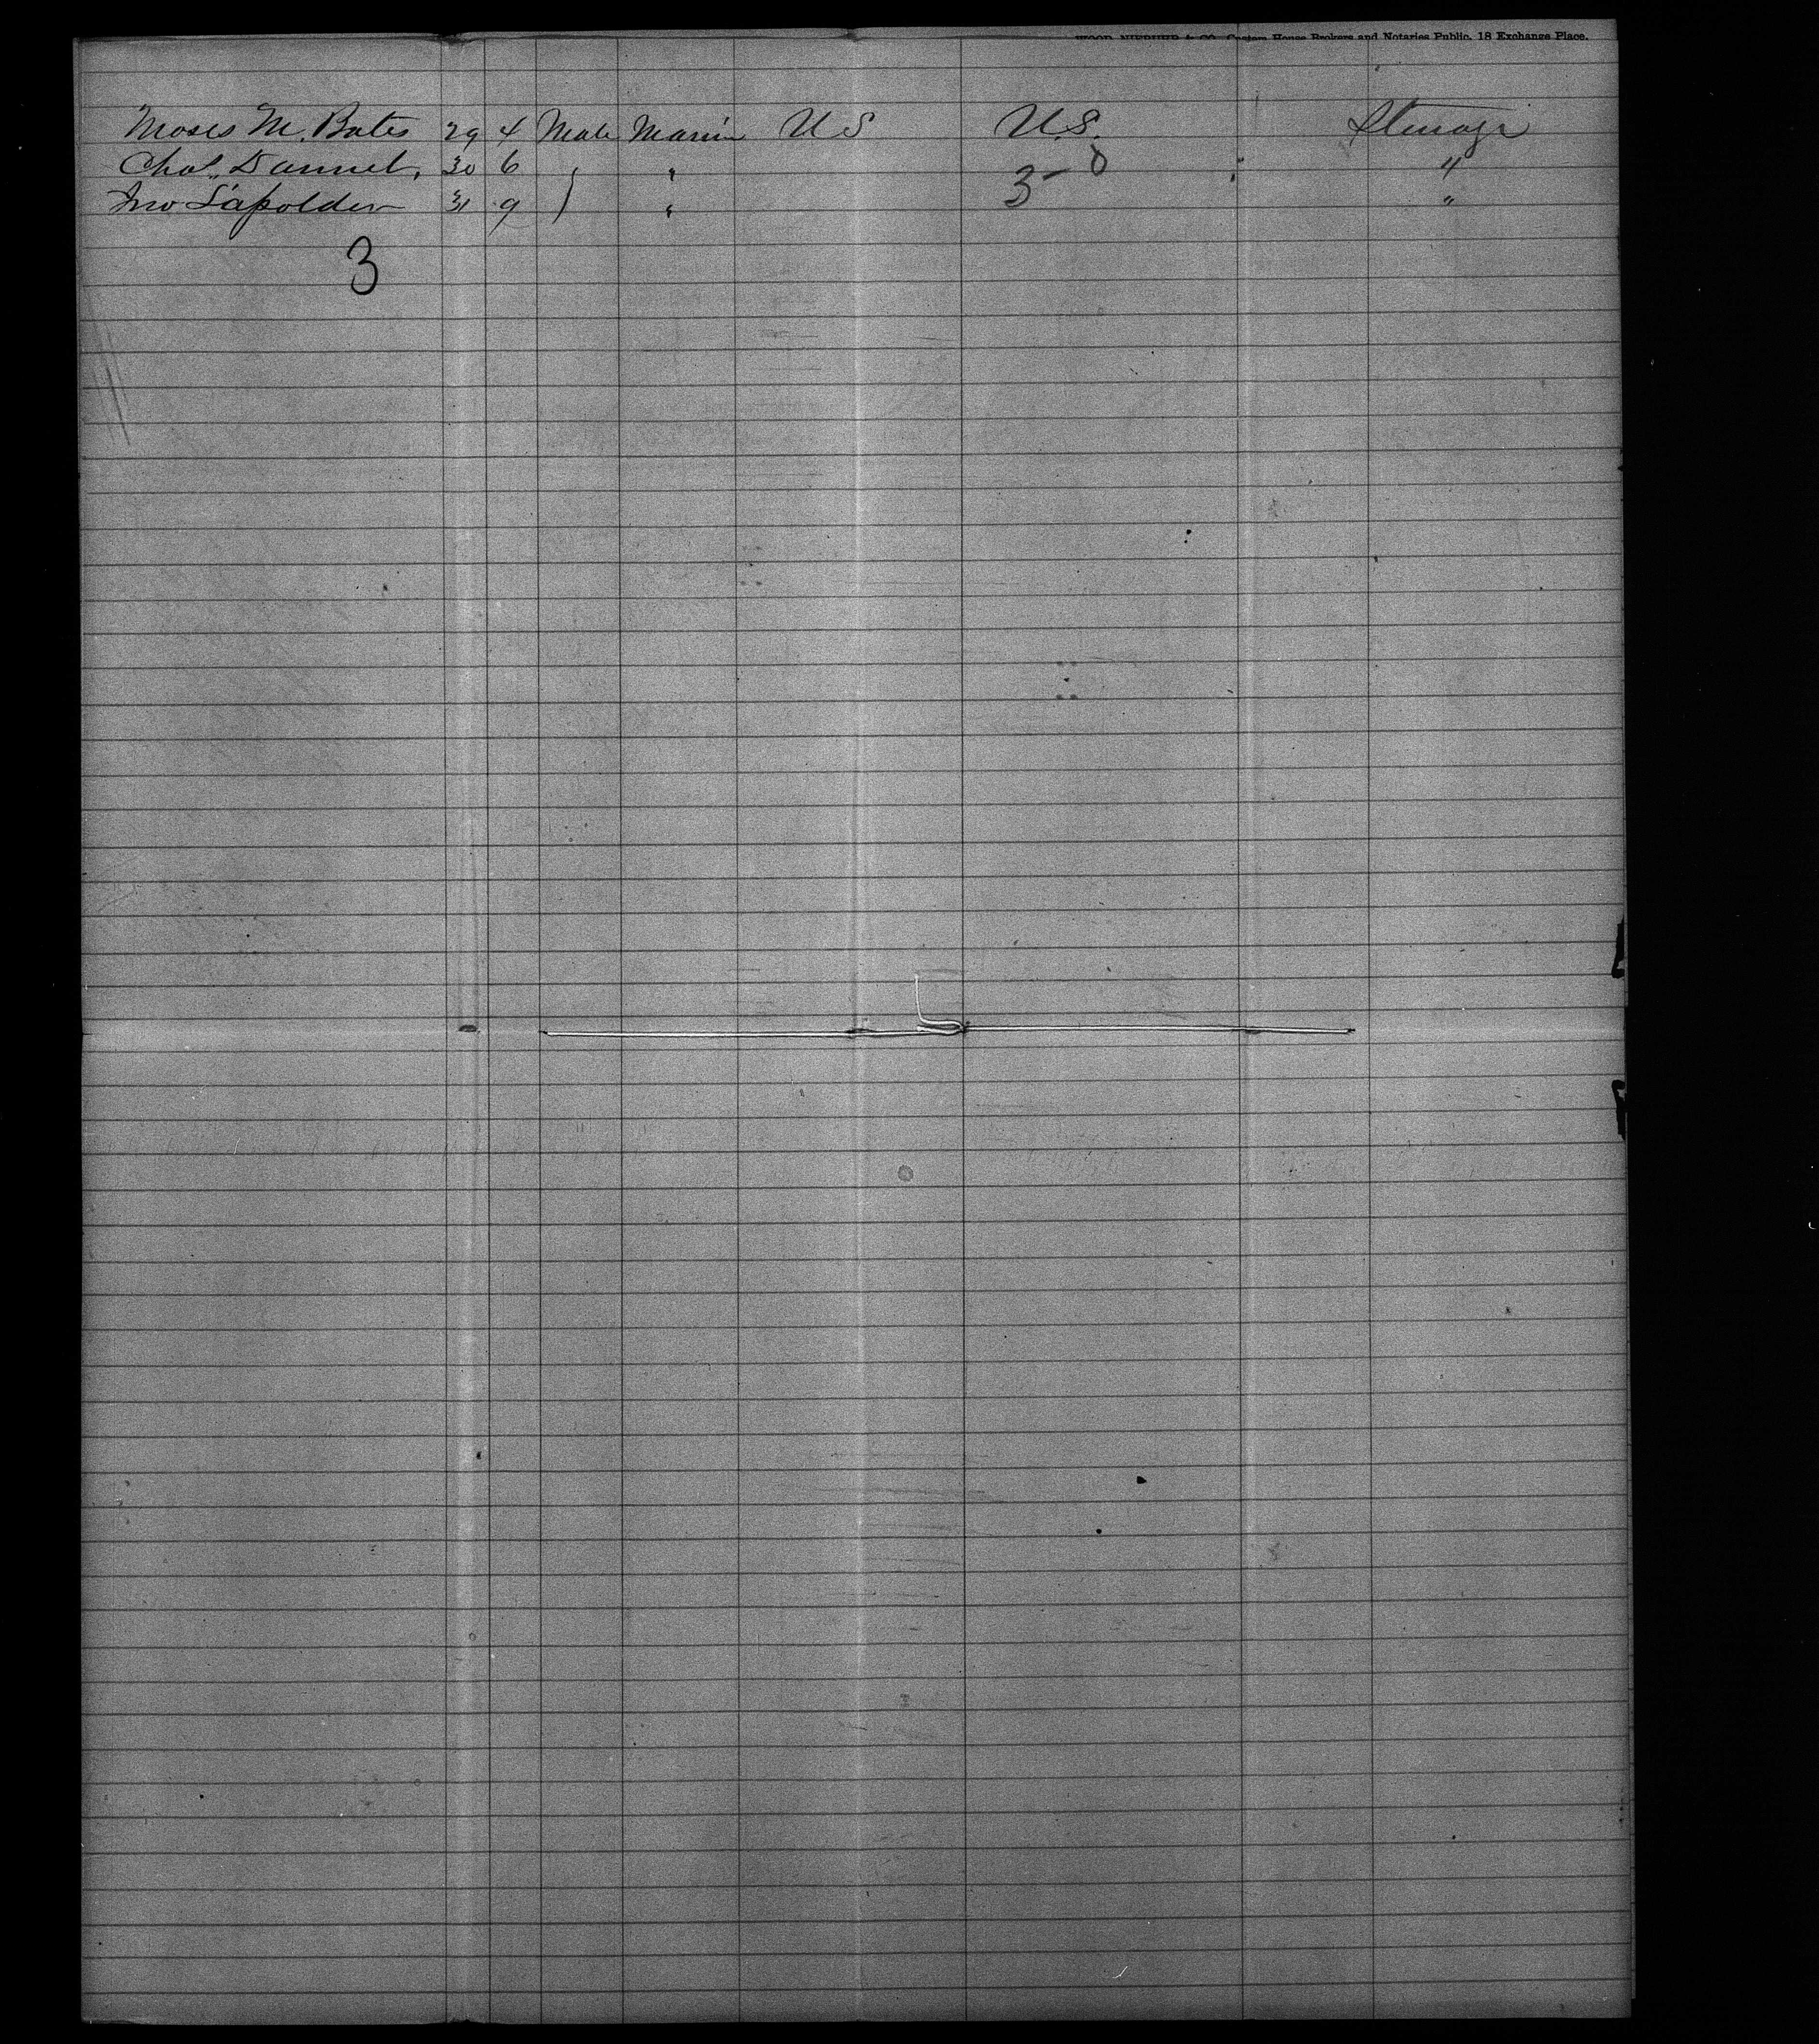 WOOD, NIEBUHR & CO. Custom House Brokers and Notaries Public, 18 Exchange Place.
Moses M. Bates 29 4 Male Marin U S U.S. Steerage
Chas. Daniel, 30 6 " " 3 - 0 "
Jno Lapolder 31 9 " "
3